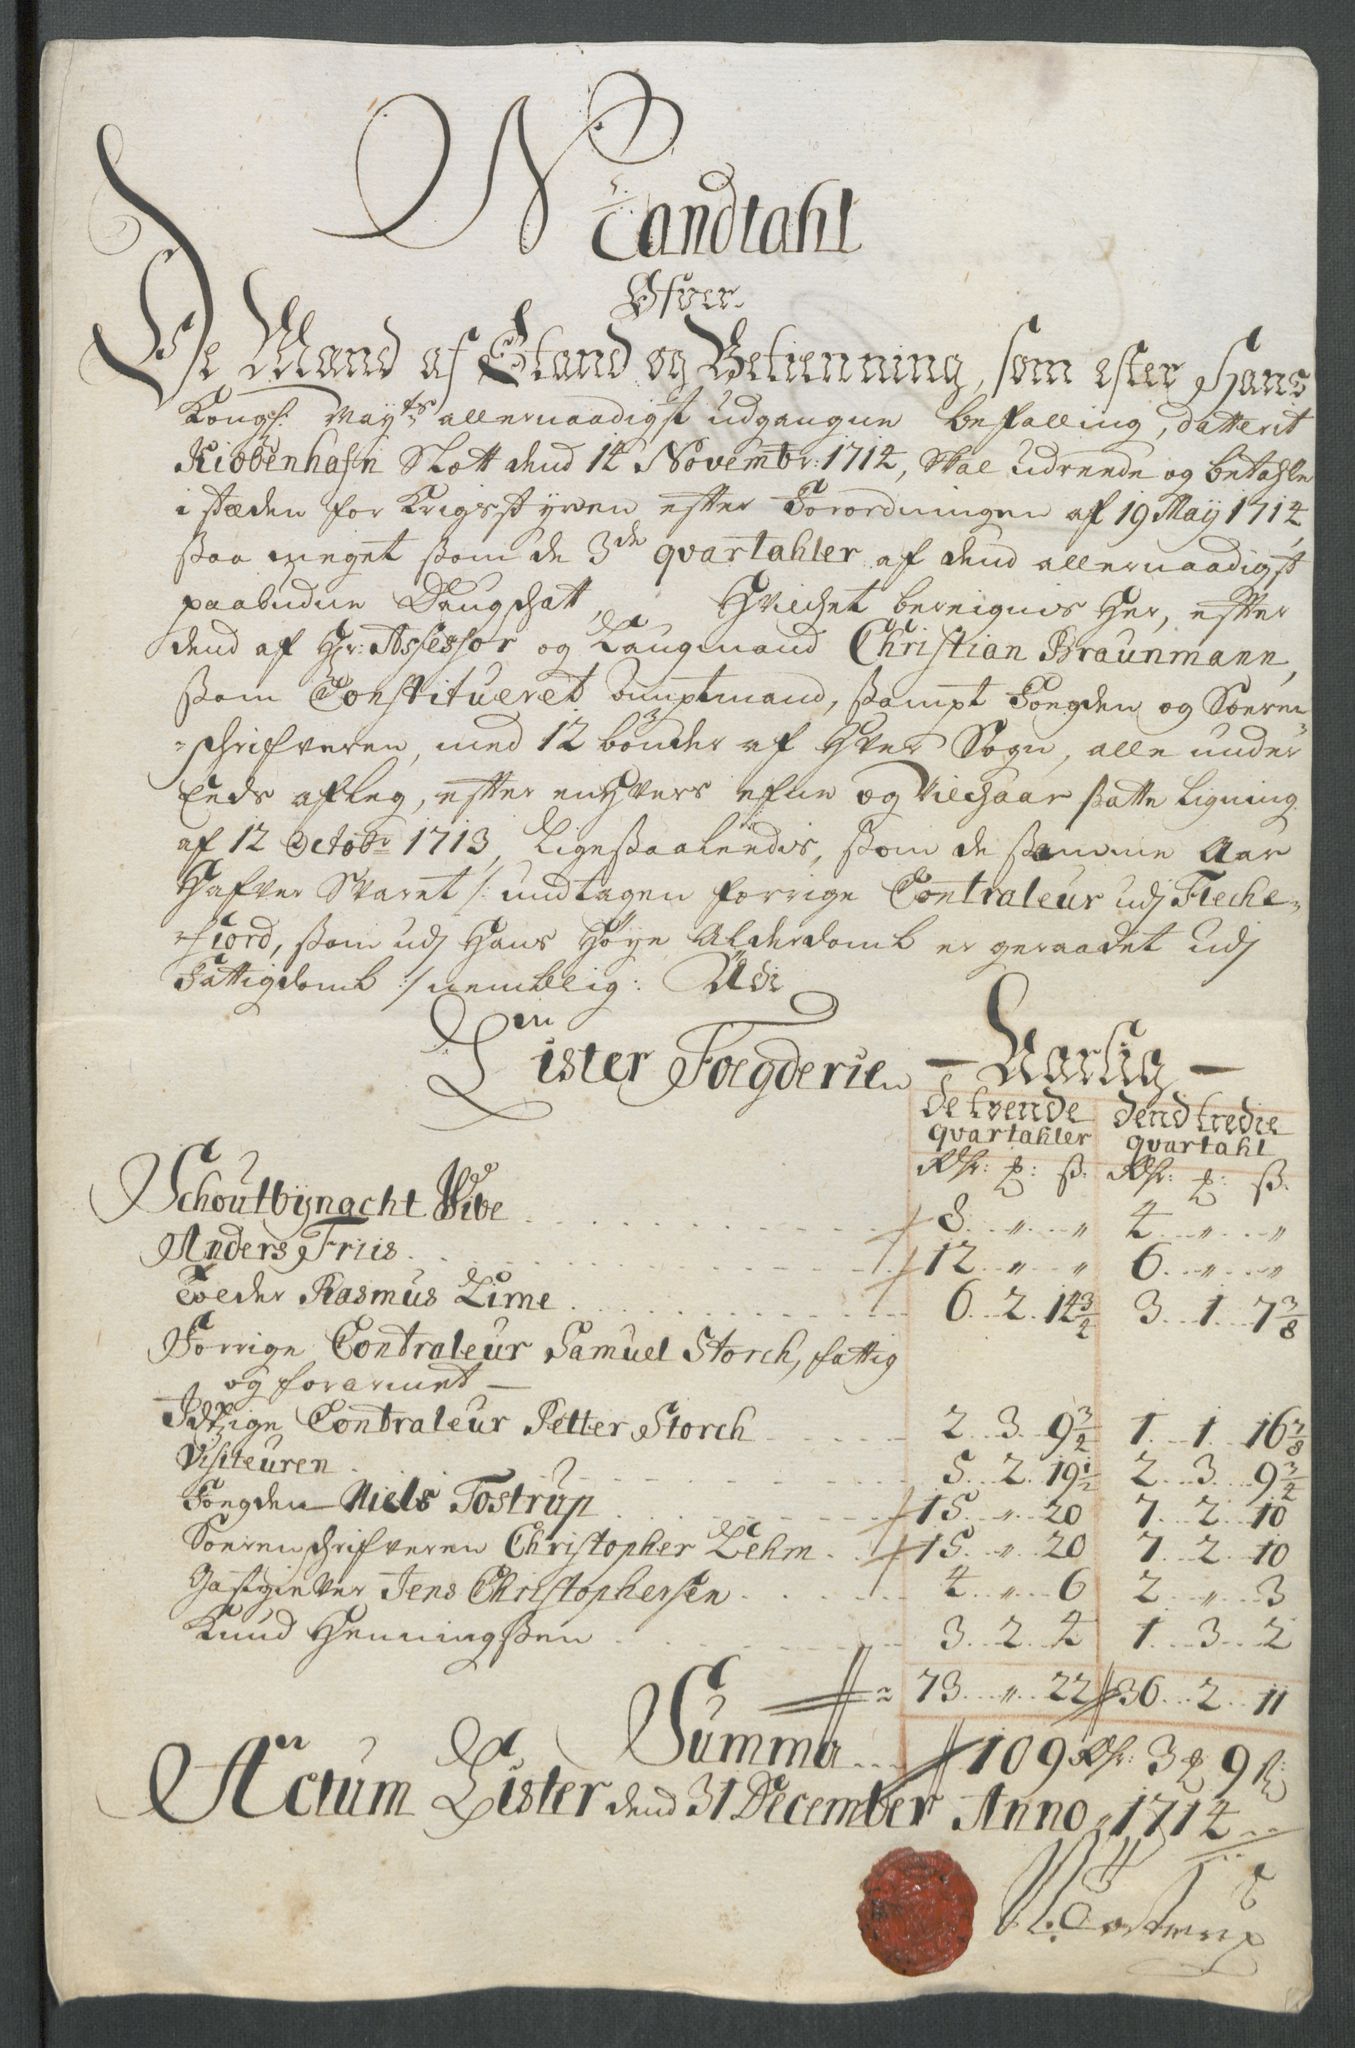 Mandtahl
Ofver
De Mænd af Stand og Betienning, som efter Hans
Kongl: May:ts allernaadigst udgangne befalling, datterit
Kiøbenhafn Slott dend 14 Novembr: 1714, skal udreede og betahle
i stæden for Krigsstyren efter Forordningen af 19 Maij 1714
ssaa meget ssom de 3de qvartahler af dend allernaadigst
paabudne Daugschatt, Hvilchet bereignis her, efter
dend af Hr: Assessor og Laugmand Christian Braunmann,
ssom Constitueret Amptmand, ssampt Fogden og Soeren=
=schrifveren, med 12 bönder af hver Sogn, alle under
Eeds afleg, efter enhvers efne og Vilchaar ssatte Ligning
af 12 Octobr 1713, Ligessaaledis, ssom de ssamme Aar
hafver Svaret /: undtagen forrige Contraleur udj Fleche=
=fiord, ssom udj Hans Høye Alderdomb er geraadet udj
Fattigdomb :/ nemblig: Udi
Lister Foegderie - Narlig -
de tvende qvartahler dend tredie qvartahl
Rdr: ꝥ: ß. Rdr: ꝥ: ß.
Schoutbynacht Wibe 8 " " 4 " "
Anders Friis 12 " " 6 " "
Tolder Rasmus Lime 6 2 14 3/4 3 1 7 3/8
Forrige Contraleur Samuel Storch, fattig
og forarmet
Idtzige Contraleur Petter Storch 2 3 9 3/4 1 1 16 7/8
Visiteuren 5 2 19 1/2 2 3 9 3/4
Foegden Niels Tostrup 15 " 20 7 2 10
Soerenschrifveren Christopher Lehm 15 " 20 7 2 10
Gastgiever Jens Christophersen 4 " 6 2 " 3
Knud Henningssen 3 2 4 1 3 2
73 " 22 36 2 11
Summa 109 Rdr: 3 ꝥ 9 ß
Actum Lister dend 31 December Anno 1714
N. Tostrup